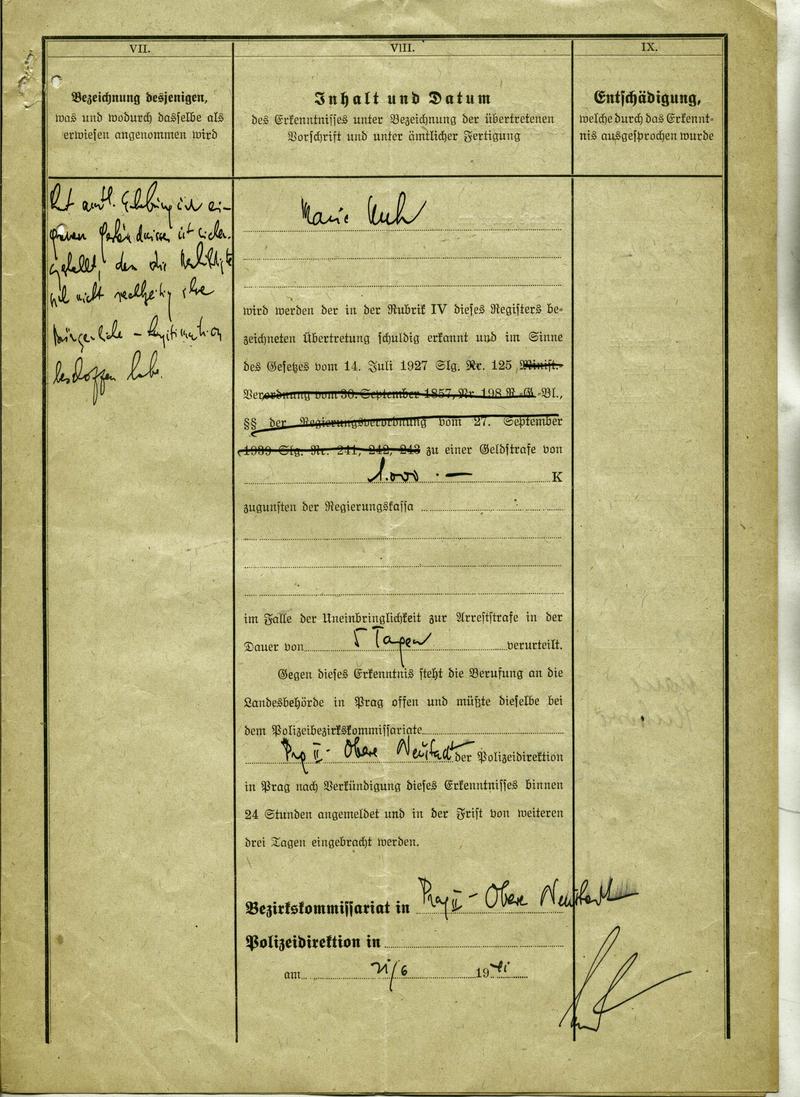 VII.
VIII.
IX.
Bezeichnung desjenigen,
was und wodurch dasselbe als
erwiesen angenommen wird
Inhalt und Datum
des Erkenntnisses unter Bezeichnung der übertretenen
Vorschrift und unter ämtlicher Fertigung
Entschädigung,
welche durch das Erkennt-
nis ausgesprochen wurde
ei-
nicht rechtzeitig ihre
Bürgerliche - Legitimation
habe.
Marie
wird werden der in der Rubrik IV dieses Registers be-
zeichneten Übertretung schuldig erkannt und im Sinne
des Gesetzes vom 14. Juli 1927 Slg. Nr. 125, Minist.-
Verordnung vom 30. September 1857, Nr. 198 R.-G.-Bl.,
§§ der Regierungsverordnung vom 27. September
1939 Slg. Nr. 241, 242, 243 zu einer Geldstrafe von
K
zugunsten der Regierungskassa
im Falle der Uneinbringlichkeit zur Arreststrafe in der
Dauer von 5 Tagen verurteilt.
Gegen dieses Erkenntnis steht die Berufung an die
Landesbehörde in Prag offen und müßte dieselbe bei
dem Polizeibezirkskommissariate
Prag II - Obere Neustadt der Polizeidirektion
in Prag nach Verkündigung dieses Erkenntnisses binnen
24 Stunden angemeldet und in der Frist von weiteren
drei Tagen eingebracht werden.
Bezirkskommissariat in Prag II - Obere Neustadt
Polizeidirektion in
am 21/6 1941